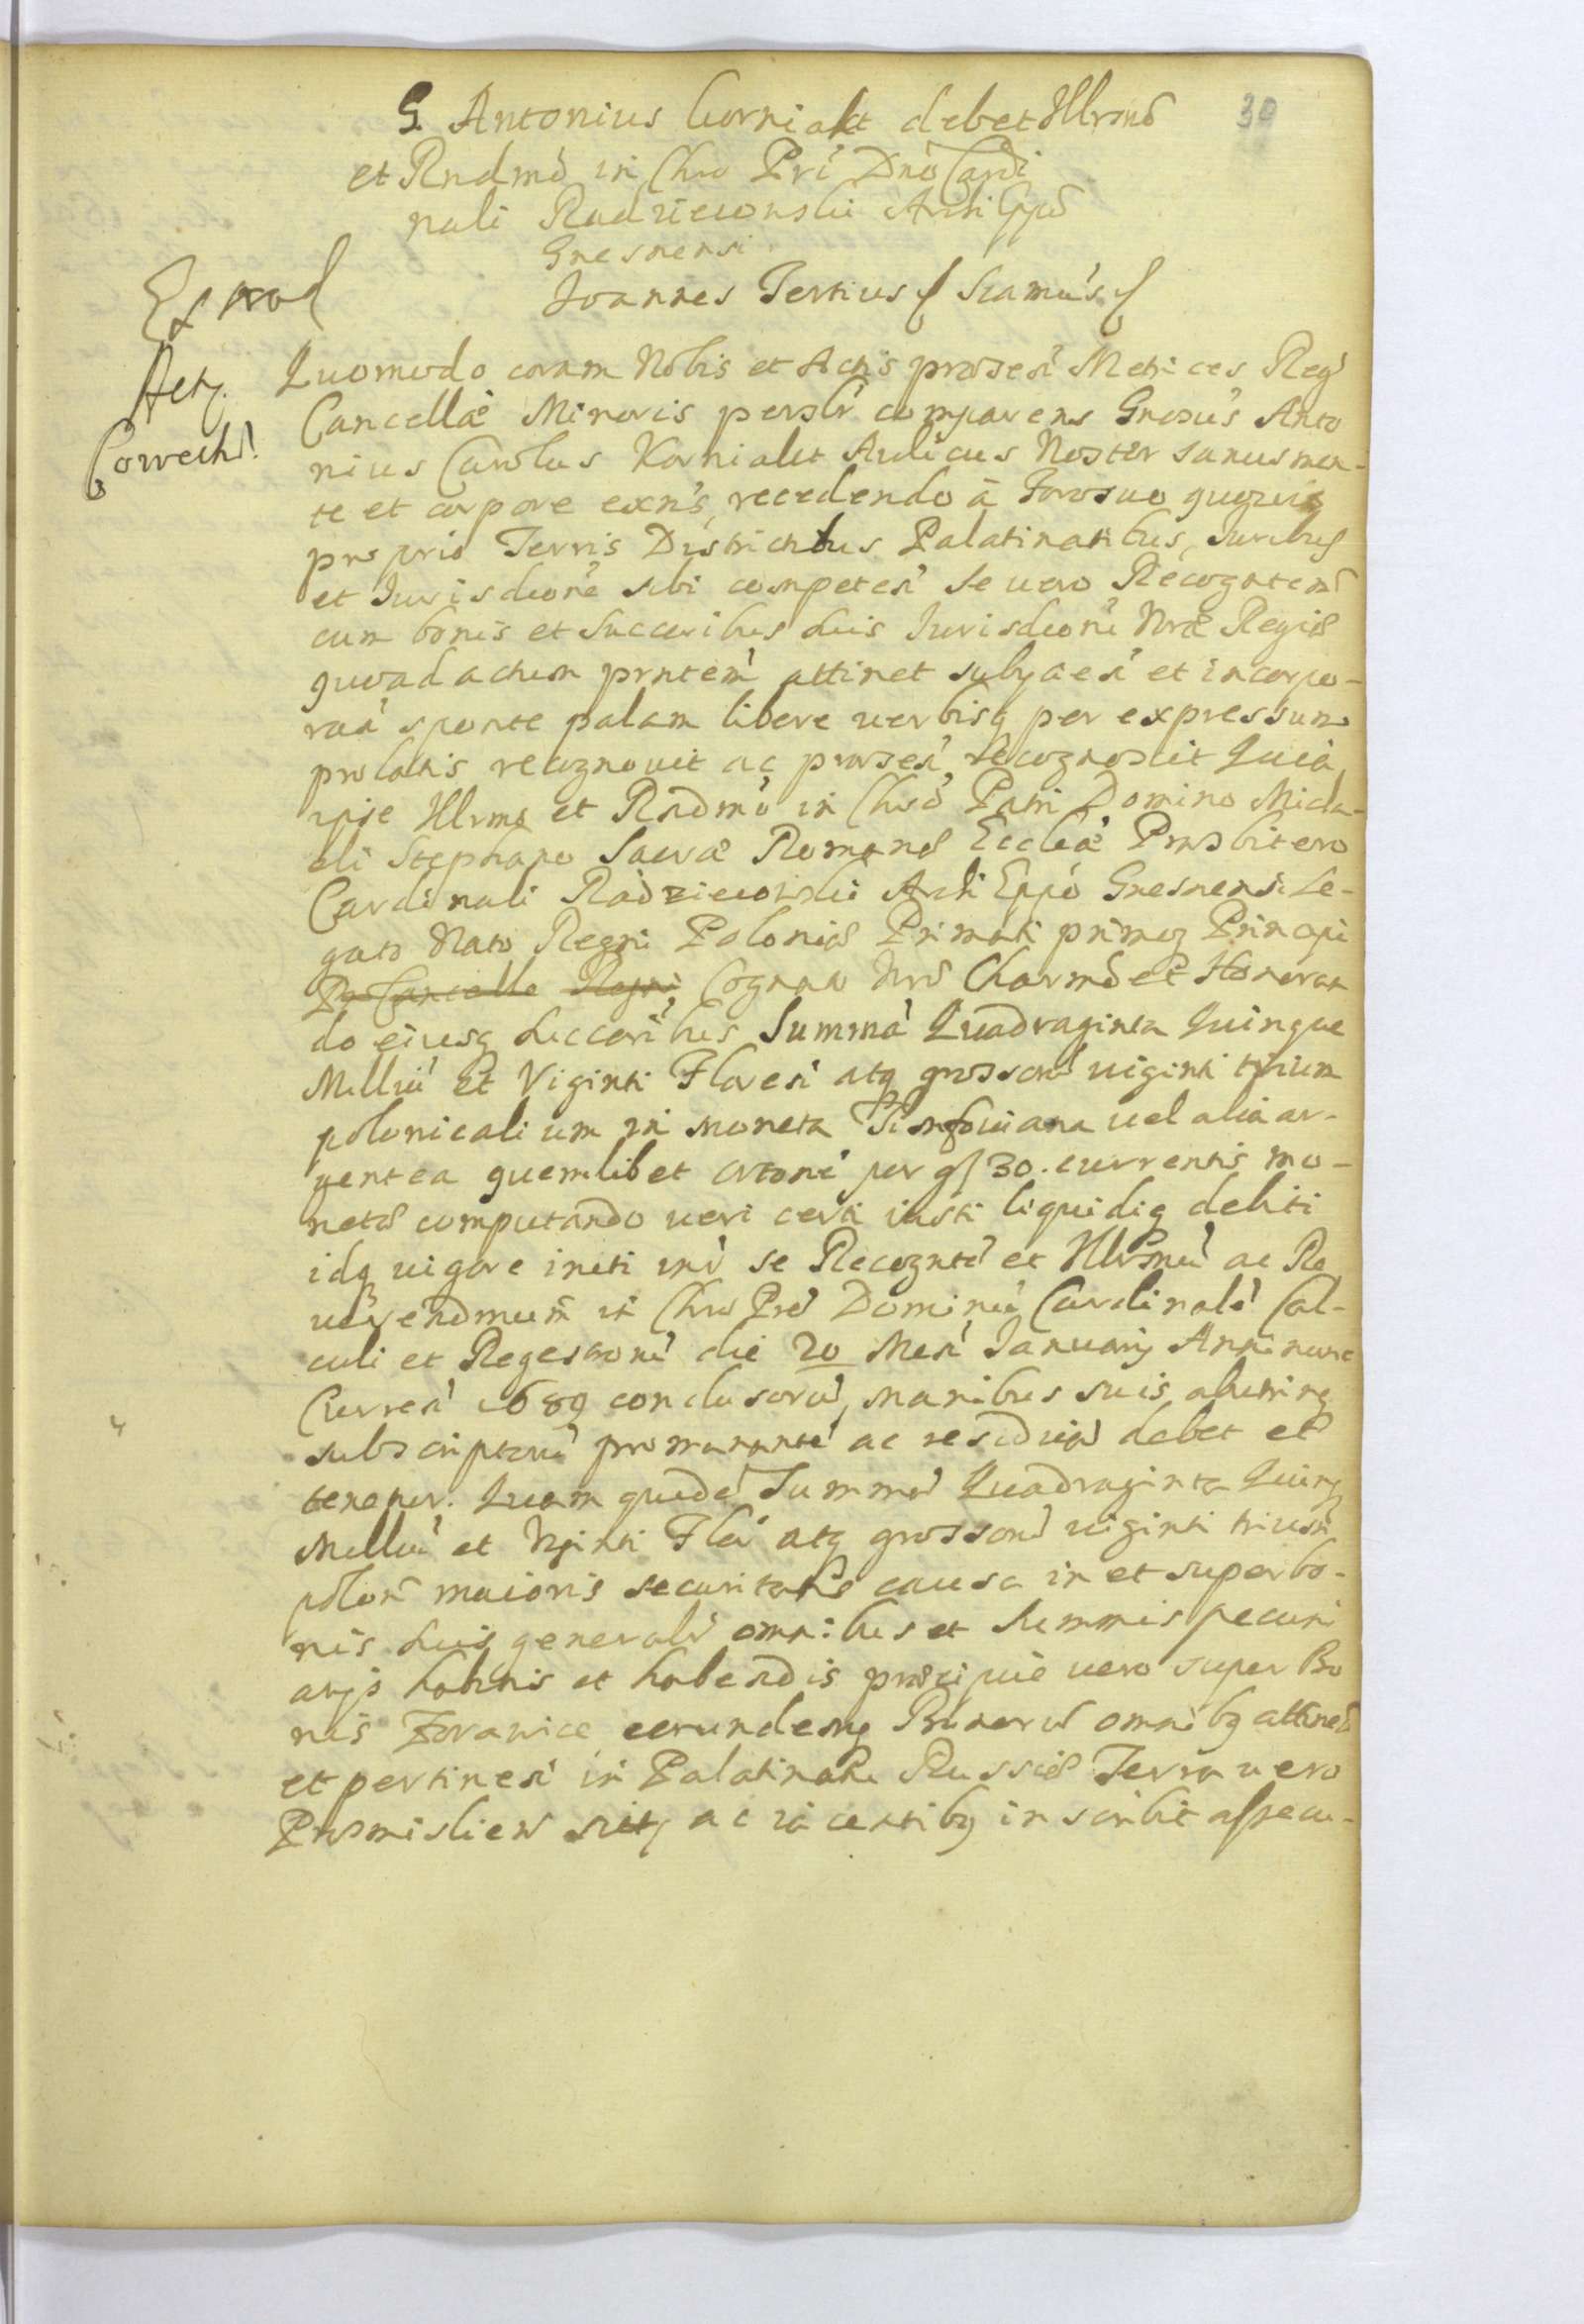 30
G. Antonius Korniakt debet Illrmo
et Rndmo in Chro Pri Dno Cardi
nali Radzieiowski Archi Eppo
Gnesnensi.
Joannes Tertius Scamus
Ext rod
Actz.
Correcta
Quomodo coram Nobis et Actis praesen Metrices Regn
Cancellae Minoris persolr comparens Grosus Anto
nius Carolus Korniakt Aulicus Noster sanus men-
te et corpore exns, recedendo à Foro suo quovis
proprio Terris Districtibus Palatinatibus, Juribus
et Jurisdeone sibi competen se vero Recogntem
cum bonis et Succoribus suis Jurisdeoni Nrae Regiae
quoad actum prntem attinet subijcen et incorpo-
ran sponte palam libere verbisq per expressum
prolatis recognovit ac praesen recognoscit Quia
ipse Illrmo et Rndmo in Chro Patri Domino Micha-
eli Stephano Sacrae Romanae Ecclae Praesbitero
Cardinali Radzieiowski Archi Eppo Gnesnensi Le-
gato Nato Regni Poloniae Primati primoq Principi
Pro Cancello Regni, Cognato Nro Charmo et Honoran
do eiusq succoribus Summa Quadraginta Quinque
Milliu et Viginti Floren atq grossoru viginti trium
polonicalium in moneta Timfoviana vel alia ar-
gentea quemlibet ortone per gf 30. currentis mo-
netae computando veri certi iusti liquidiq debiti
idq vigore initi inr se Recogntem et Illrmu ac Re
verendmum in Chro Pre Dominu Cardinale Cal-
culi et Regestoru die 20 Men Januarij Anni nunc
Curren 1689 conclusoru, manibus suis abutrinq
subscriptoru promanante ac residua debet et
tenetur. Quam quide Summa Quadraginta Quinq
Milliu et Viginti Flo atq grossoru viginti trium
polon maioris securitatis causa in et super bo-
nis suis generalr omnibus et Summis pecuni
arijs habitis et habendis praecipue vero super Bo
nis Zorawice eorundemq Bonoru omnibq attinen
et pertinen in Palatinatu Russiae Terra vero
Praemislien sitq ac iacentibq inscribit assecu-